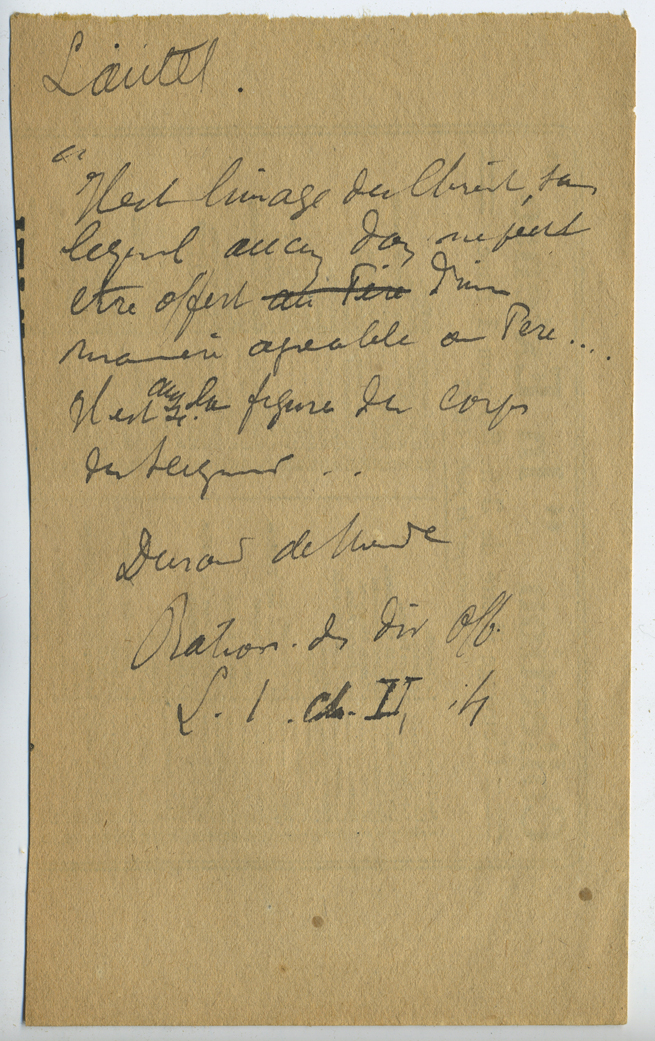 L'autel.
"Il est l'image du Christ, sans
lequel aucun don ne peut
etre offert au Père d'une
manière agreable au Pere...
Il est aussi la figure du corps
du Seigneur ...
Durand de Mende
Ration. des div Off.
L. 1. Ch. II,